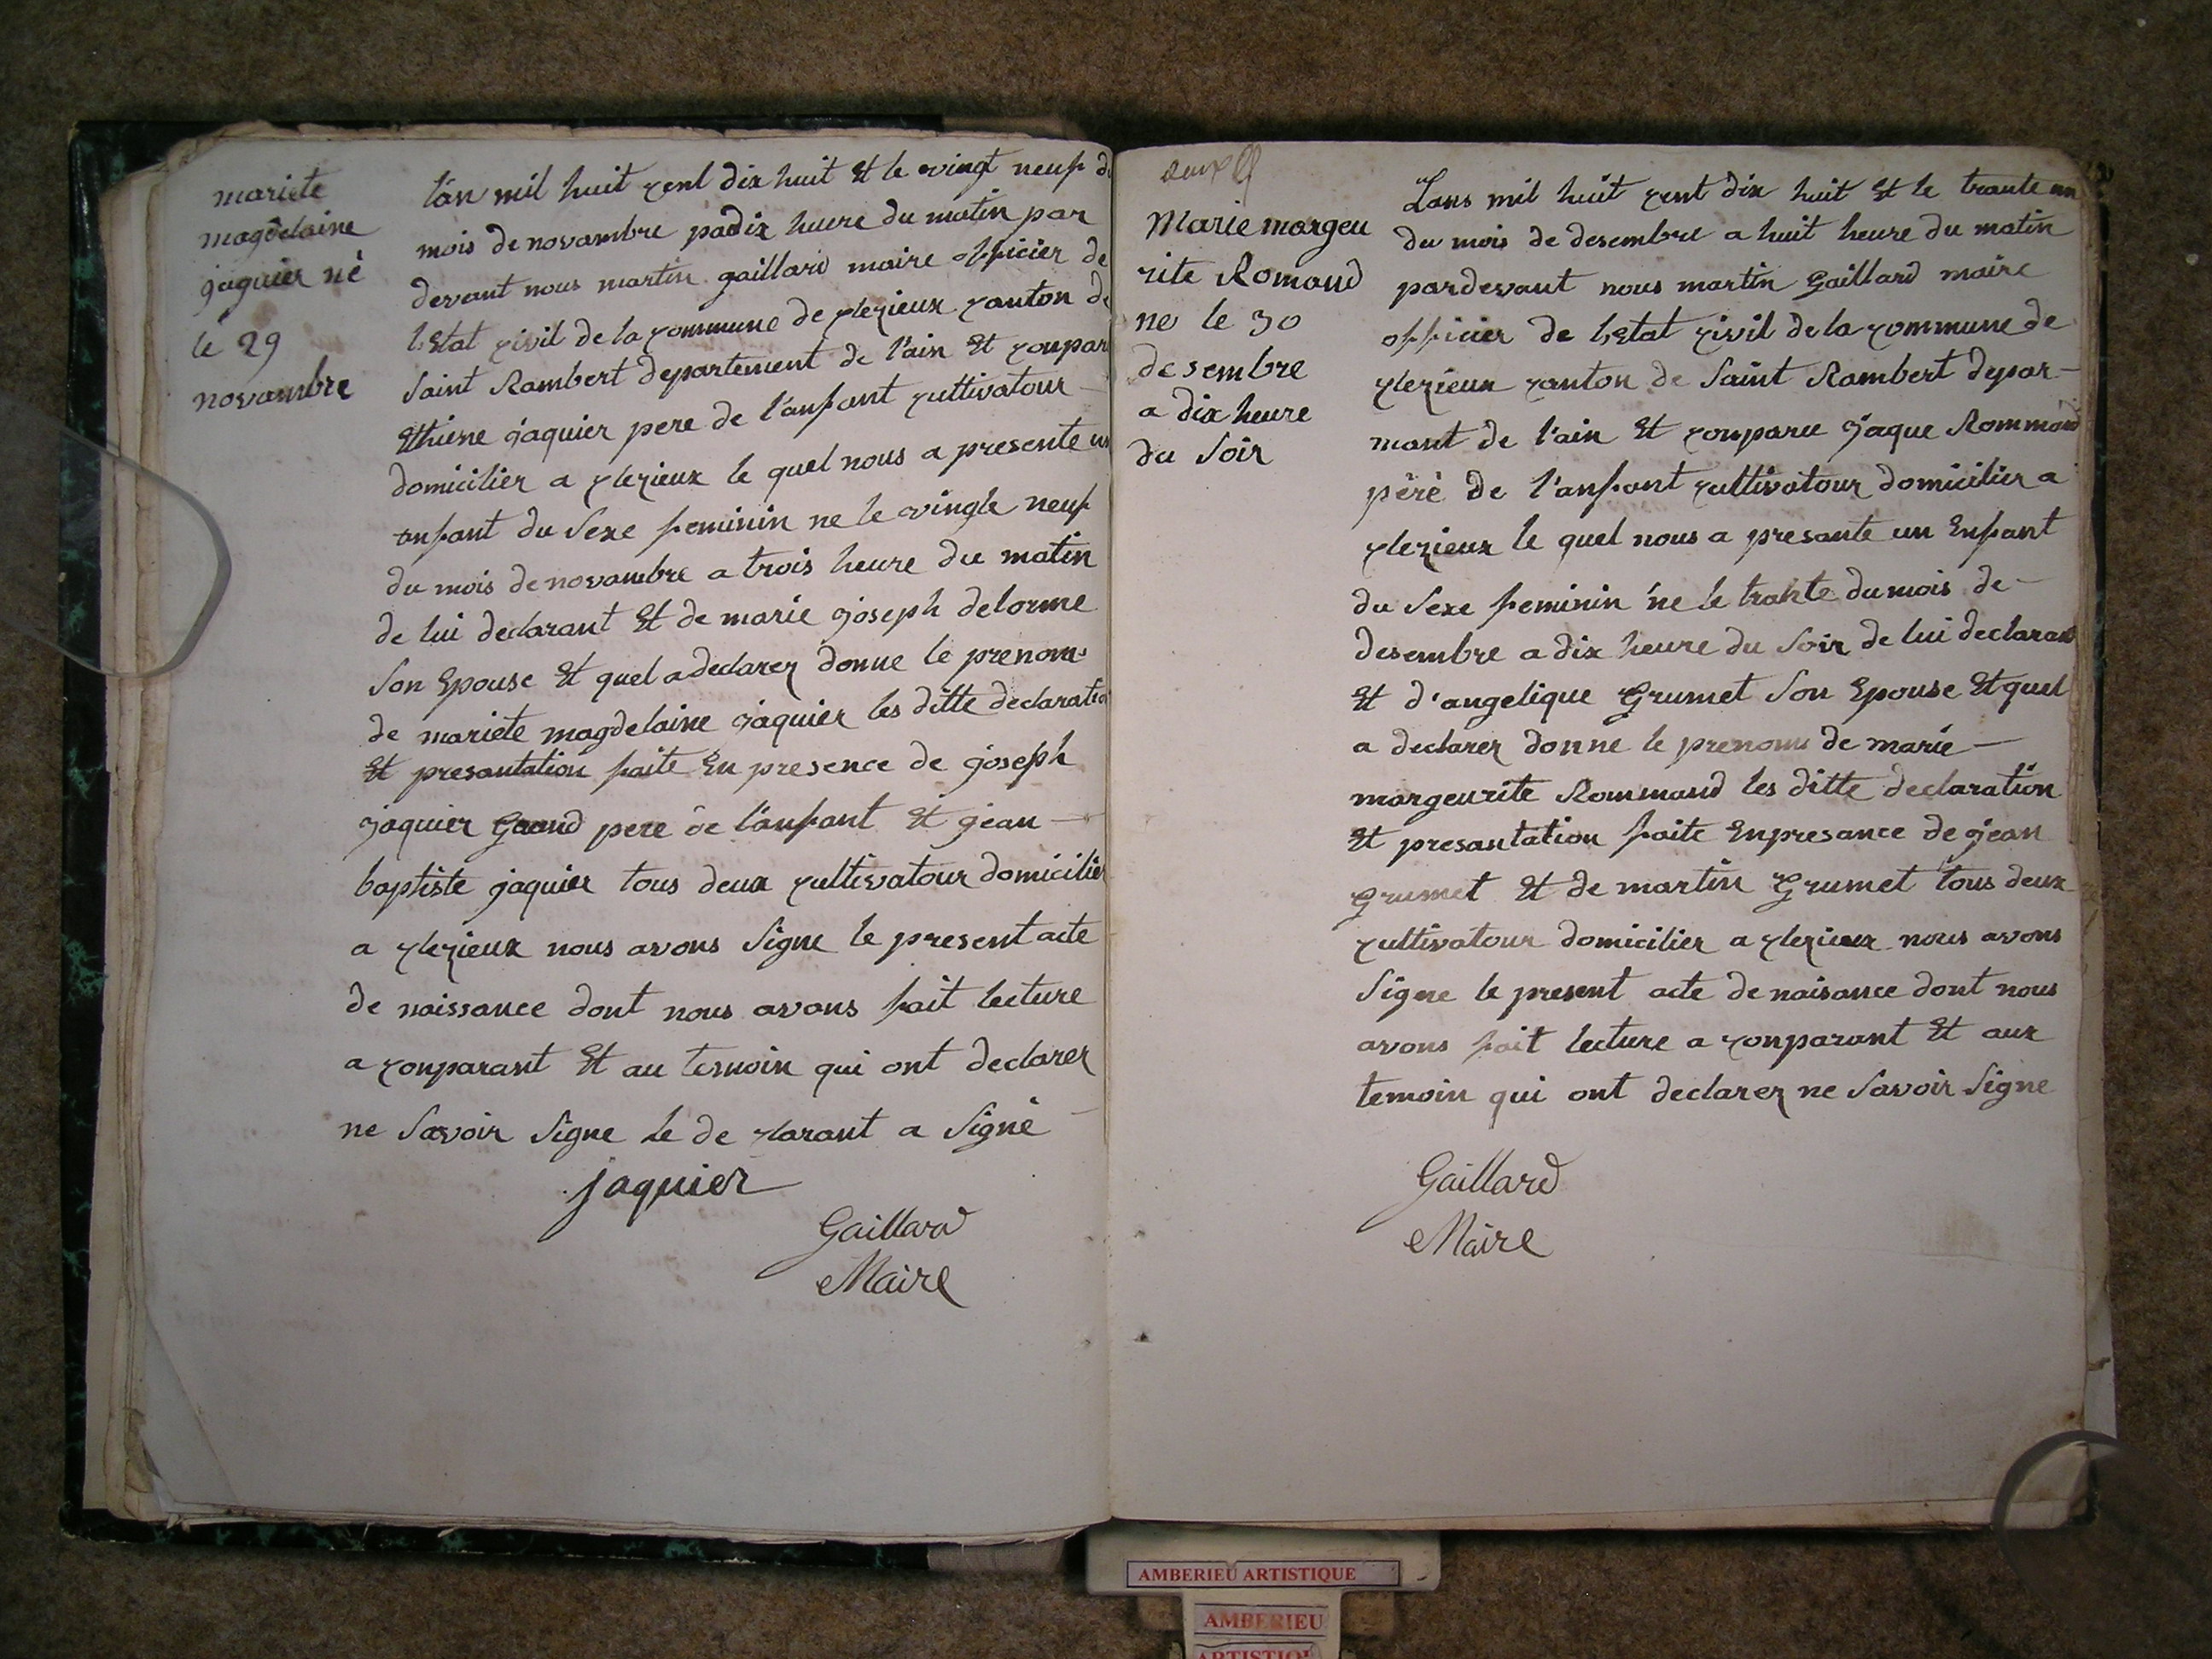 mariete
magdelaine
jaquier né
le 29
novambre
l'an mil huit cent dix huit Et le vingt neuf d
mois de novambre pa dix heure du matin par
devant nous martin gaillard maire officier de
l'Etat civil de la commune de clezieux canton de
Saint Rambert departement de l'ain Et conpar
Ethiene jaquier pere de l'anfant cultivatour
domicilier a clezieux le quel nous a presente un
anfant du Sexe feminin ne le vingte neuf
du mois de novambre a trois heure du matin
de lui declarant Et de marie joseph delorme
Son Epouse Et quel a declarer donne le prenom
de mariete magdelaine jaquier les ditte declaratio
Et presantation faite En presence de joseph
jaquier Grand pere de l'anfant Et jean
baptiste jaquier tous deux cultivatour domicilier
a clezieux nous avons Signe le present acte
de naissance dont nous avons fait lecture
a conparant Et au temoin qui ont declarer
ne Savoir Signe le de clarant a Signé
jaquier
Gaillard
Maire
Marie margeu
rite Romand
ne le 30
desembre
a dix heure
du Soir
Lans mil huit cent dix huit Et le trante un
du mois de desembre a huit heure du matin
pardevant nous martin Gaillard maire
officier de l'Etat civil de la commune de
clezieux canton de Saint Rambert depar-
mant de l'ain Et conparu jaque Rommand
péré de l'anfant cultivatour domicilier a
clezieux le quel nous a presante un Enfant
du Sexe feminin ne le trante du mois de
desembre a dix heure du Soir de lui declarant
Et d'angelique Grumet Son Epouse Et quel
a declarer donne le prenom de marie
margeurite Rommand les ditte declaration
Et presantation faite Enpresance de jean
Grumet Et de martin Grumet tous deux
cultivatour domicilier a clezieux nous avons
Signe le present acte de naisance dont nous
avons fait lecture a conparant Et aux
temoin qui ont declarer ne Savoir Signe
Gaillard
Maire
AMBERIEU ARTISTIQUE
AMBERIEU
ARTISTIQUE